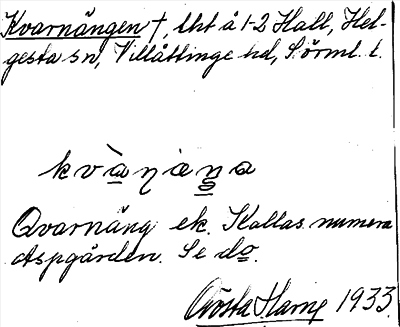 Kvarnängen †, lht å 1-2 Hall, Hel-
gesta sn, Villåttinge hd, Sörml. l.
kvàṇȧna
Qvarnäng ek. Kallas numera
Aspgården. Se do.
Gösta Harne 1933.